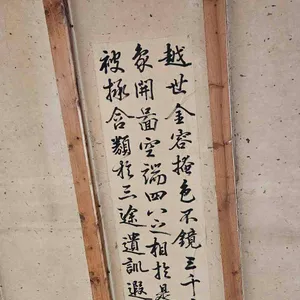 越世金容掩色不鏡三千
象開圖空端四八之相於是
被拯含類於三途遺訓遐